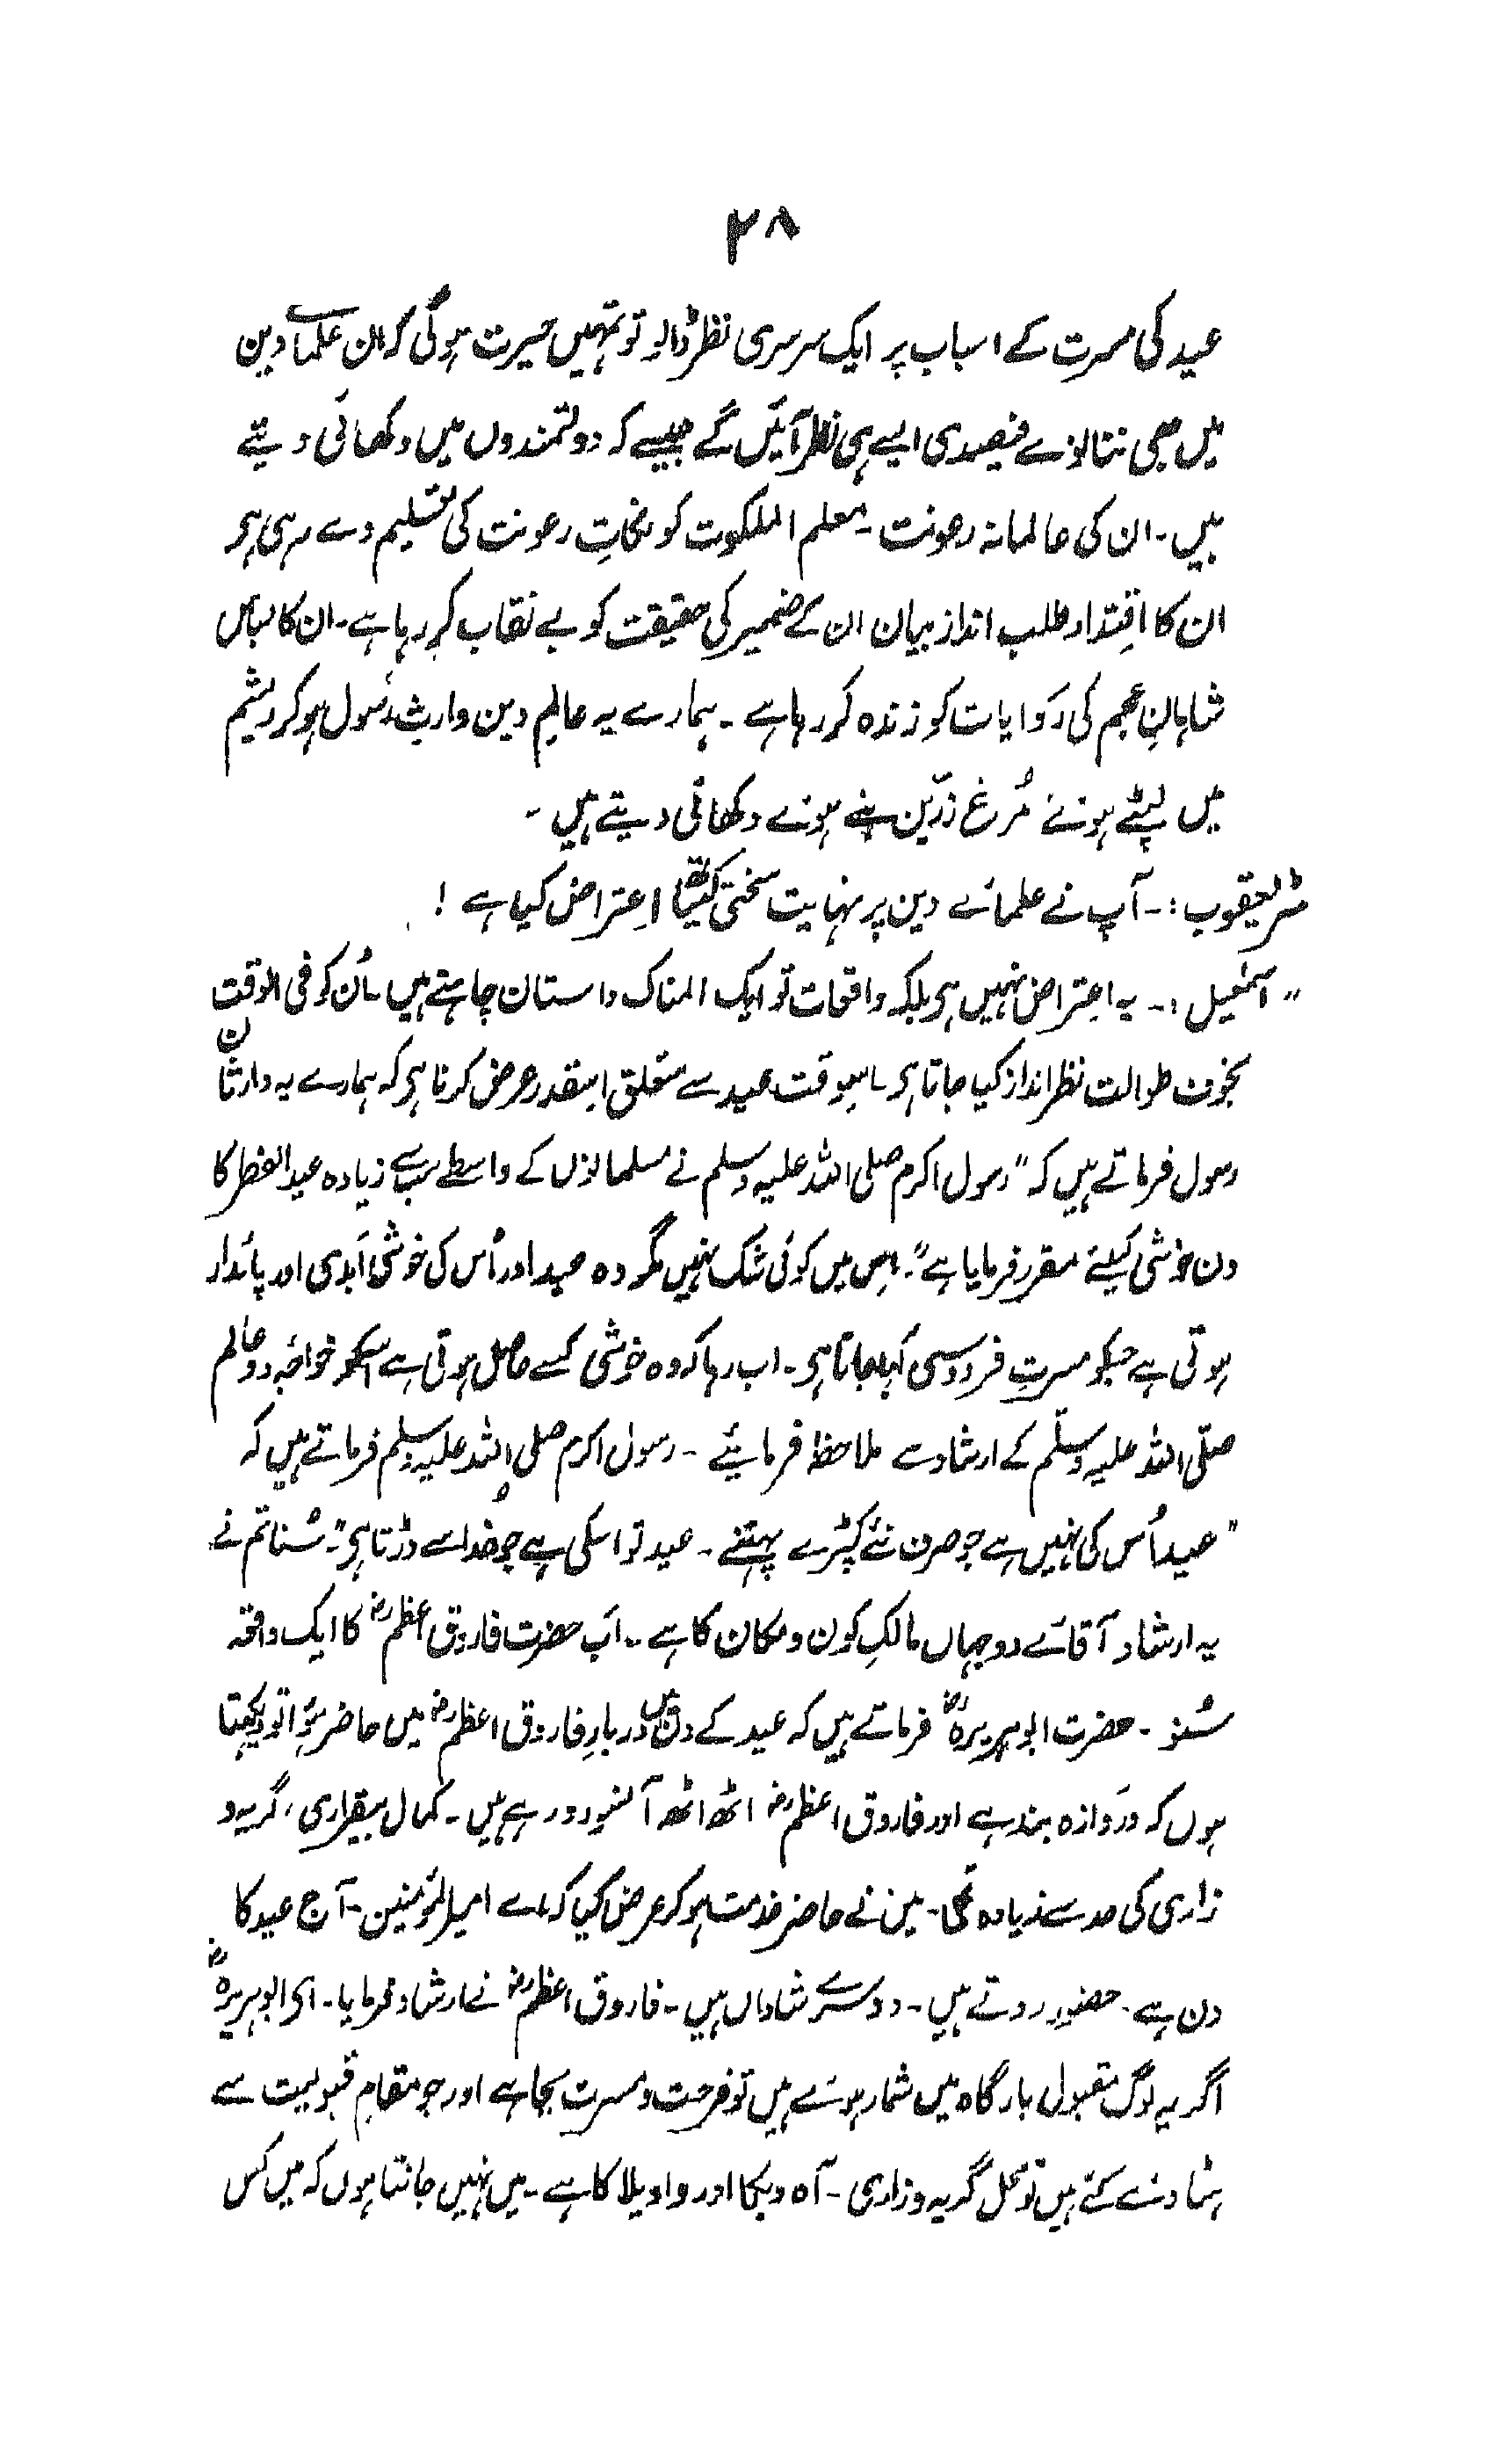 ۲۸
عید کی مسرت کے اسباب پر ایک سرسری نظر ڈالو تو تمہیں حیرت ہوگی کہ ان علمائے دین
میں بھی ننانوے فیصدی ایسے ہی نظر آئیں گے جیسے کہ دولتمندوں میں دکھائی دیتے
ہیں ۔ ان کی عالمانہ رعونت ۔ معلم الملکوت کو نکاتِ رعونت کی تعلیم دے رہی ہی
ان کا اقتدار طلب انداز بیان ان کے ضمیر کی حقیقت کو بے نقاب کر رہا ہے ۔ ان کا لباس
شاہانِ عجم کی رَوایات کو زندہ کر رہا ہے ۔ ہمارے یہ عالمِ دین وارثِ رسول ہو کر ریشم
میں لپٹے ہوئے مُرغ زرّین بنے ہوئے دکھائی دیتے ہیں ۔
مسٹر یعقوب :۔ آپ نے علمائے دین پر نہایت سختی کیساتھ اعتراض کیا ہے !
〃 اسمٰعیل :۔ یہ اعتراض نہیں ہی بلکہ واقعات تو ایک المناک داستان چاہتے ہیں ۔ اُن کو فی الوقت
بخوف طوالت نظر انداز کیا جاتا ہی ۔ اسوقت عید سے متعلق اسقدر عرض کرنا ہی کہ ہمارے یہ وارثان
رسول فرماتے ہیں کہ "رسول اکرم صلی اللہ علیہ وسلم نے مسلمانوں کے واسطے سب سے زیادہ عید الفطر کا
دن خوشی کیلئے مقرر فرمایا ہے"۔ اس میں کوئی شک نہیں مگر وہ عید اور اُس کی خوشی اَبدی اور پائدار
ہوتی ہے جسکو مسرتِ فردوسی کہا جاتا ہی ۔ اب رہا کہ وہ خوشی کسے حاصل ہوتی ہے اسکو خواجہ دو عالم
صلّی اللہ علیہ وسلّم کے ارشاد سے ملاحظہ فرمایئے ۔ رسول اکرم صلی اللہ علیہ وسلم فرماتے ہیں کہ
"عید اُس کی نہیں ہے جو صرف نئے کپڑے پہنے ۔ عید تو اسکی ہے جو خدا سے ڈرتا ہی"۔ سُنا تم نے
یہ ارشاد آقائے دو جہاں مالکِ کون و مکان کا ہے ۔ اَب حضرت فاروق اعظمؓ کا ایک واقعہ
سُنو ۔ حضرت ابوہریرہؓ فرماتے ہیں کہ عید کے دن میں دربارِ فاروق اعظمؓ میں حاضر ہُوا تو دیکھتا
ہوں کہ دَروازہ بند ہے اور فاروق اعظمؓ اٹھ اٹھ آنسو رو رہے ہیں ۔ کمال بیقراری، گریہ و
زاری کی حد سے زیادہ تھی ۔ میں نے حاضر خدمت ہو کر عرض کیا کہ اے امیر المؤمنین ۔ آج عید کا
دن ہے ۔ حضور روتے ہیں ۔ دوسرے شاداں ہیں ۔ فاروق اعظمؓ نے ارشاد فرمایا ۔ اے ابوہریرہؓ
اگر یہ لوگ مقبول بارگاہ میں شمار ہوئے ہیں تو فرحت و مسرت بجا ہے اور جو مقامِ قبولیت سے
ہٹا دئے گئے ہیں تو محل گریہ و زاری ۔ آہ و بکا اور واویلا کا ہے ۔ میں نہیں جانتا ہوں کہ میں کس